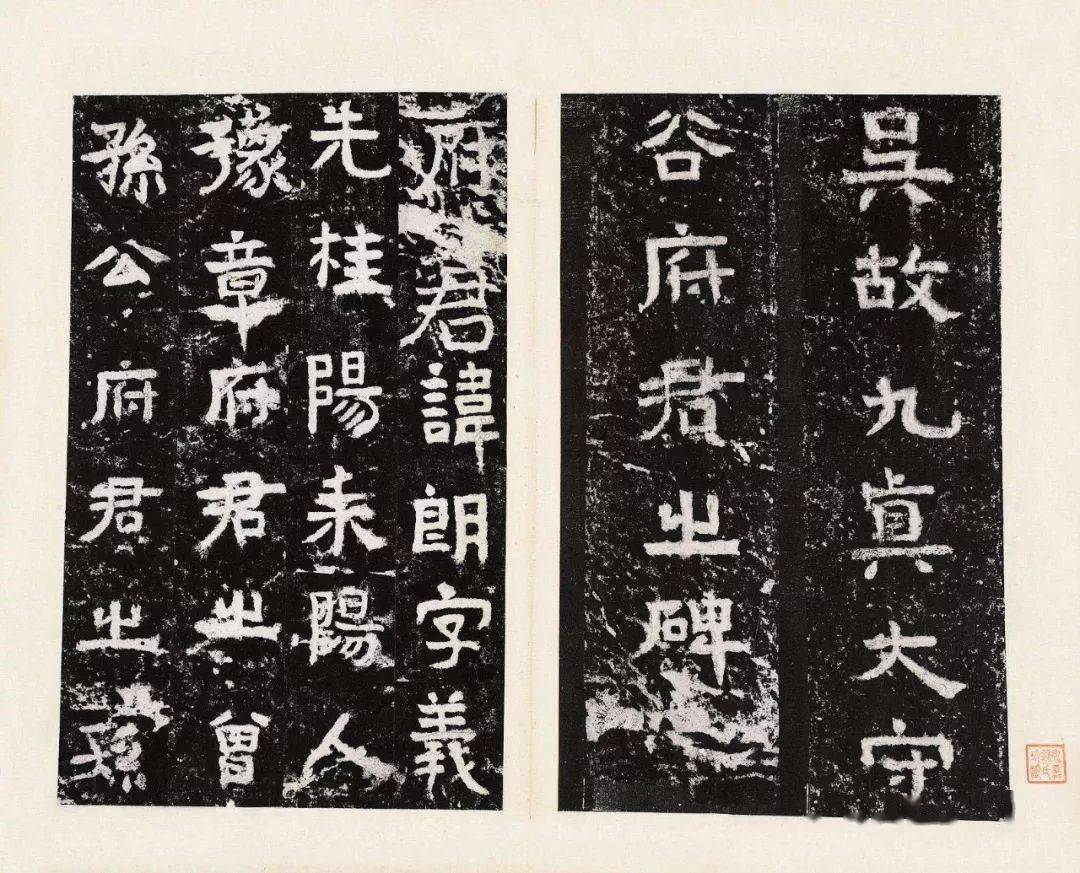 吳故九真大守
谷府君之碑
府君諱朗字義
先桂陽耒陽人
豫章府君之曾
孫公府君之孫